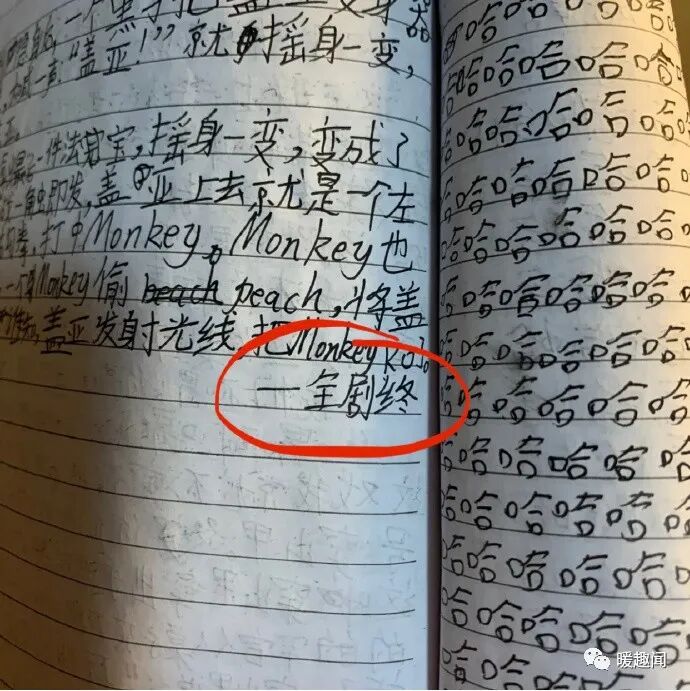 一个黑手把盖亚变身器
一声“盖亚！”就摇身一变，
一件法宝，摇身一变，变成了
一触即发，盖亚上去就是一个左
勾拳，打中Monkey。Monkey也
一个Monkey偷 beach peach，将盖
盖亚发射光线，把Monkey KO。
—全剧终
哈哈哈哈哈
哈哈哈哈哈
哈哈哈哈哈
哈哈哈哈哈
哈哈哈哈哈
哈哈哈哈哈
哈哈哈哈哈
哈哈哈哈哈
哈哈哈哈哈
哈哈哈哈哈
哈哈哈哈哈
哈哈哈哈哈
哈哈哈哈哈
暖趣闻